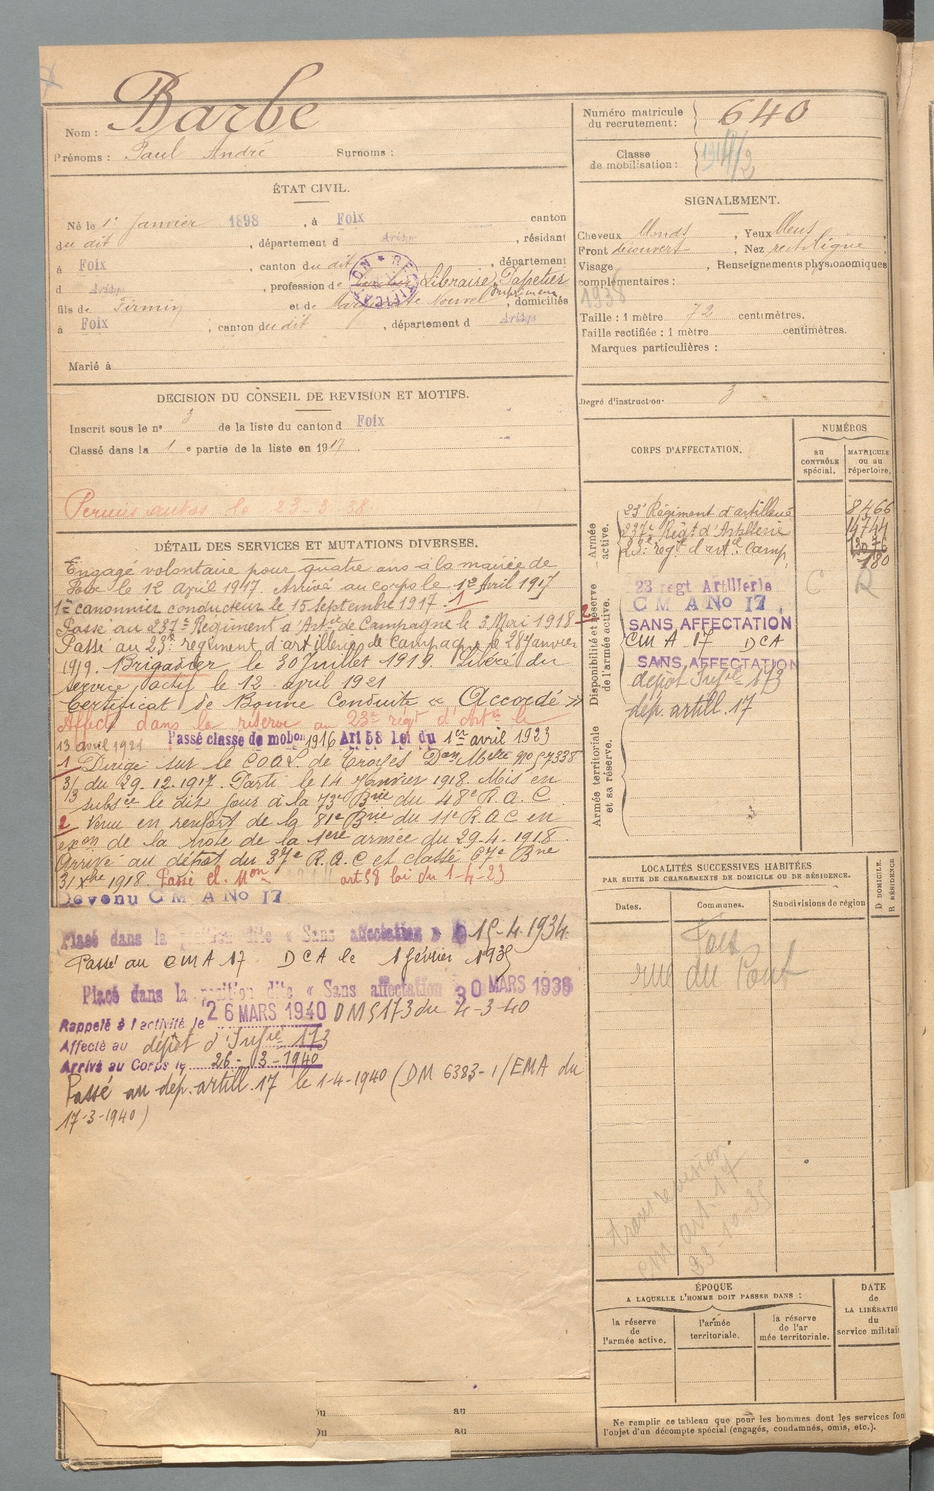 Nom : Barbe
Prénoms : Paul André Surnoms :
Numéro matricule du recrutement : 640
Classe de mobilisation :
ÉTAT CIVIL.
Né le 1er Janvier 1898, à Foix canton
du dit, département d Ariège, résidant
à Foix, canton du dit, département
d Ariège, profession de Libraire Papetier
fils de Firmin et de Nouvel, domiciliés
à Foix, canton du dit, département d Ariège
Marié à
RECTIFICATION
SIGNALEMENT.
Cheveux blonds, Yeux bleus
Front découvert, Nez rectiligne
Visage, Renseignements physionomiques
complémentaires :
1938
Taille : 1 mètre 72 centimètres.
Taille rectifiée : 1 mètre centimètres.
Marques particulières :
Degré d'instruction : 3
DÉCISION DU CONSEIL DE REVISION ET MOTIFS.
Inscrit sous le n° 3 de la liste du canton d Foix
Classé dans la 1e partie de la liste en 1917.
Permis autos le 23-3-38
DÉTAIL DES SERVICES ET MUTATIONS DIVERSES.
Engagé volontaire pour quatre ans à la mairie de
Foix le 12 avril 1917. Arrivé au corps le 12 Avril 1917
1er canonnier conducteur le 15 Septembre 1917. 1
Passé au 237e Régiment d'Artie de Campagne le 3 Mai 1918 2
Passé au 23e régiment d'artillerie de Campagne le 28 janvier
1919. Brigadier le 30 Juillet 1919. Libéré du
service actif le 12 avril 1921
Certificat de Bonne Conduite « Accordé »
Affecté dans la réserve au 23e régt d'Artie le
13 avril 1921 Passé classe de mobon 1916 Art 58 Loi du 1er avril 1923
1 Dirigé sur le C.O.A.L. de Troyes Don Mtre no 57338
3/3 du 29.12.1917. Parti le 14 Janvier 1918. Mis en
subsce le dix jour à la 73e Brie du 48e R.A.C.
2 Venu en renfort de la 81e Brie du 11e R.A.C en
exon de la note de la 1ère armée du 29.4.1918.
Arrivé au dépôt du 37e R.A.C et classé 67e Brie
3/xbre 1918. Passé cl. Mon art 58 loi du 1-4-23
Devenu C M A No 17
Placé dans la position dite « Sans affectation » 15-4-1934
Passé au CMA 17 DCA le 1 février 1935
Placé dans la position dite « Sans affectation 30 MARS 1936
Rappelé à l'activité le 26 MARS 1940 DM 5173 du 4-3-40
Affecté au dépôt d'Infie 173
Arrivé au Corps le 26-03-1940
Passé au dép. artill. 17 le 1-4-1940 (DM 6383-1/EMA du
17-3-1940)
CORPS D'AFFECTATION.
NUMÉROS
au CONTRÔLE spécial.
MATRICULE ou au répertoire.
Armée active.
23e Régiment d'artillerie 8466
237e Régt d'Artillerie 14744
23e régt d'art. Camp.
180
Disponibilité et réserve de l'armée active.
23 regt Artillerie C
C M A No 17
SANS AFFECTATION
CMA 17 DCA
SANS AFFECTATION
dépôt Infie 173
dép. artill. 17
Armée territoriale et sa réserve.
LOCALITÉS SUCCESSIVES HABITÉES
PAR SUITE DE CHANGEMENTS DE DOMICILE OU DE RÉSIDENCE.
Dates. Communes. Subdivisions de région
D DOMICILE R RÉSIDENCE
Foix
rue du Pont
ÉPOQUE
A LAQUELLE L'HOMME DOIT PASSER DANS :
la réserve de l'armée active.
l'armée territoriale.
la réserve de l'armée territoriale.
DATE de LA LIBÉRATION du service militaire
Ne remplir ce tableau que pour les hommes dont les services font
l'objet d'un décompte spécial (engagés, condamnés, omis, etc.).
Du au
Du au